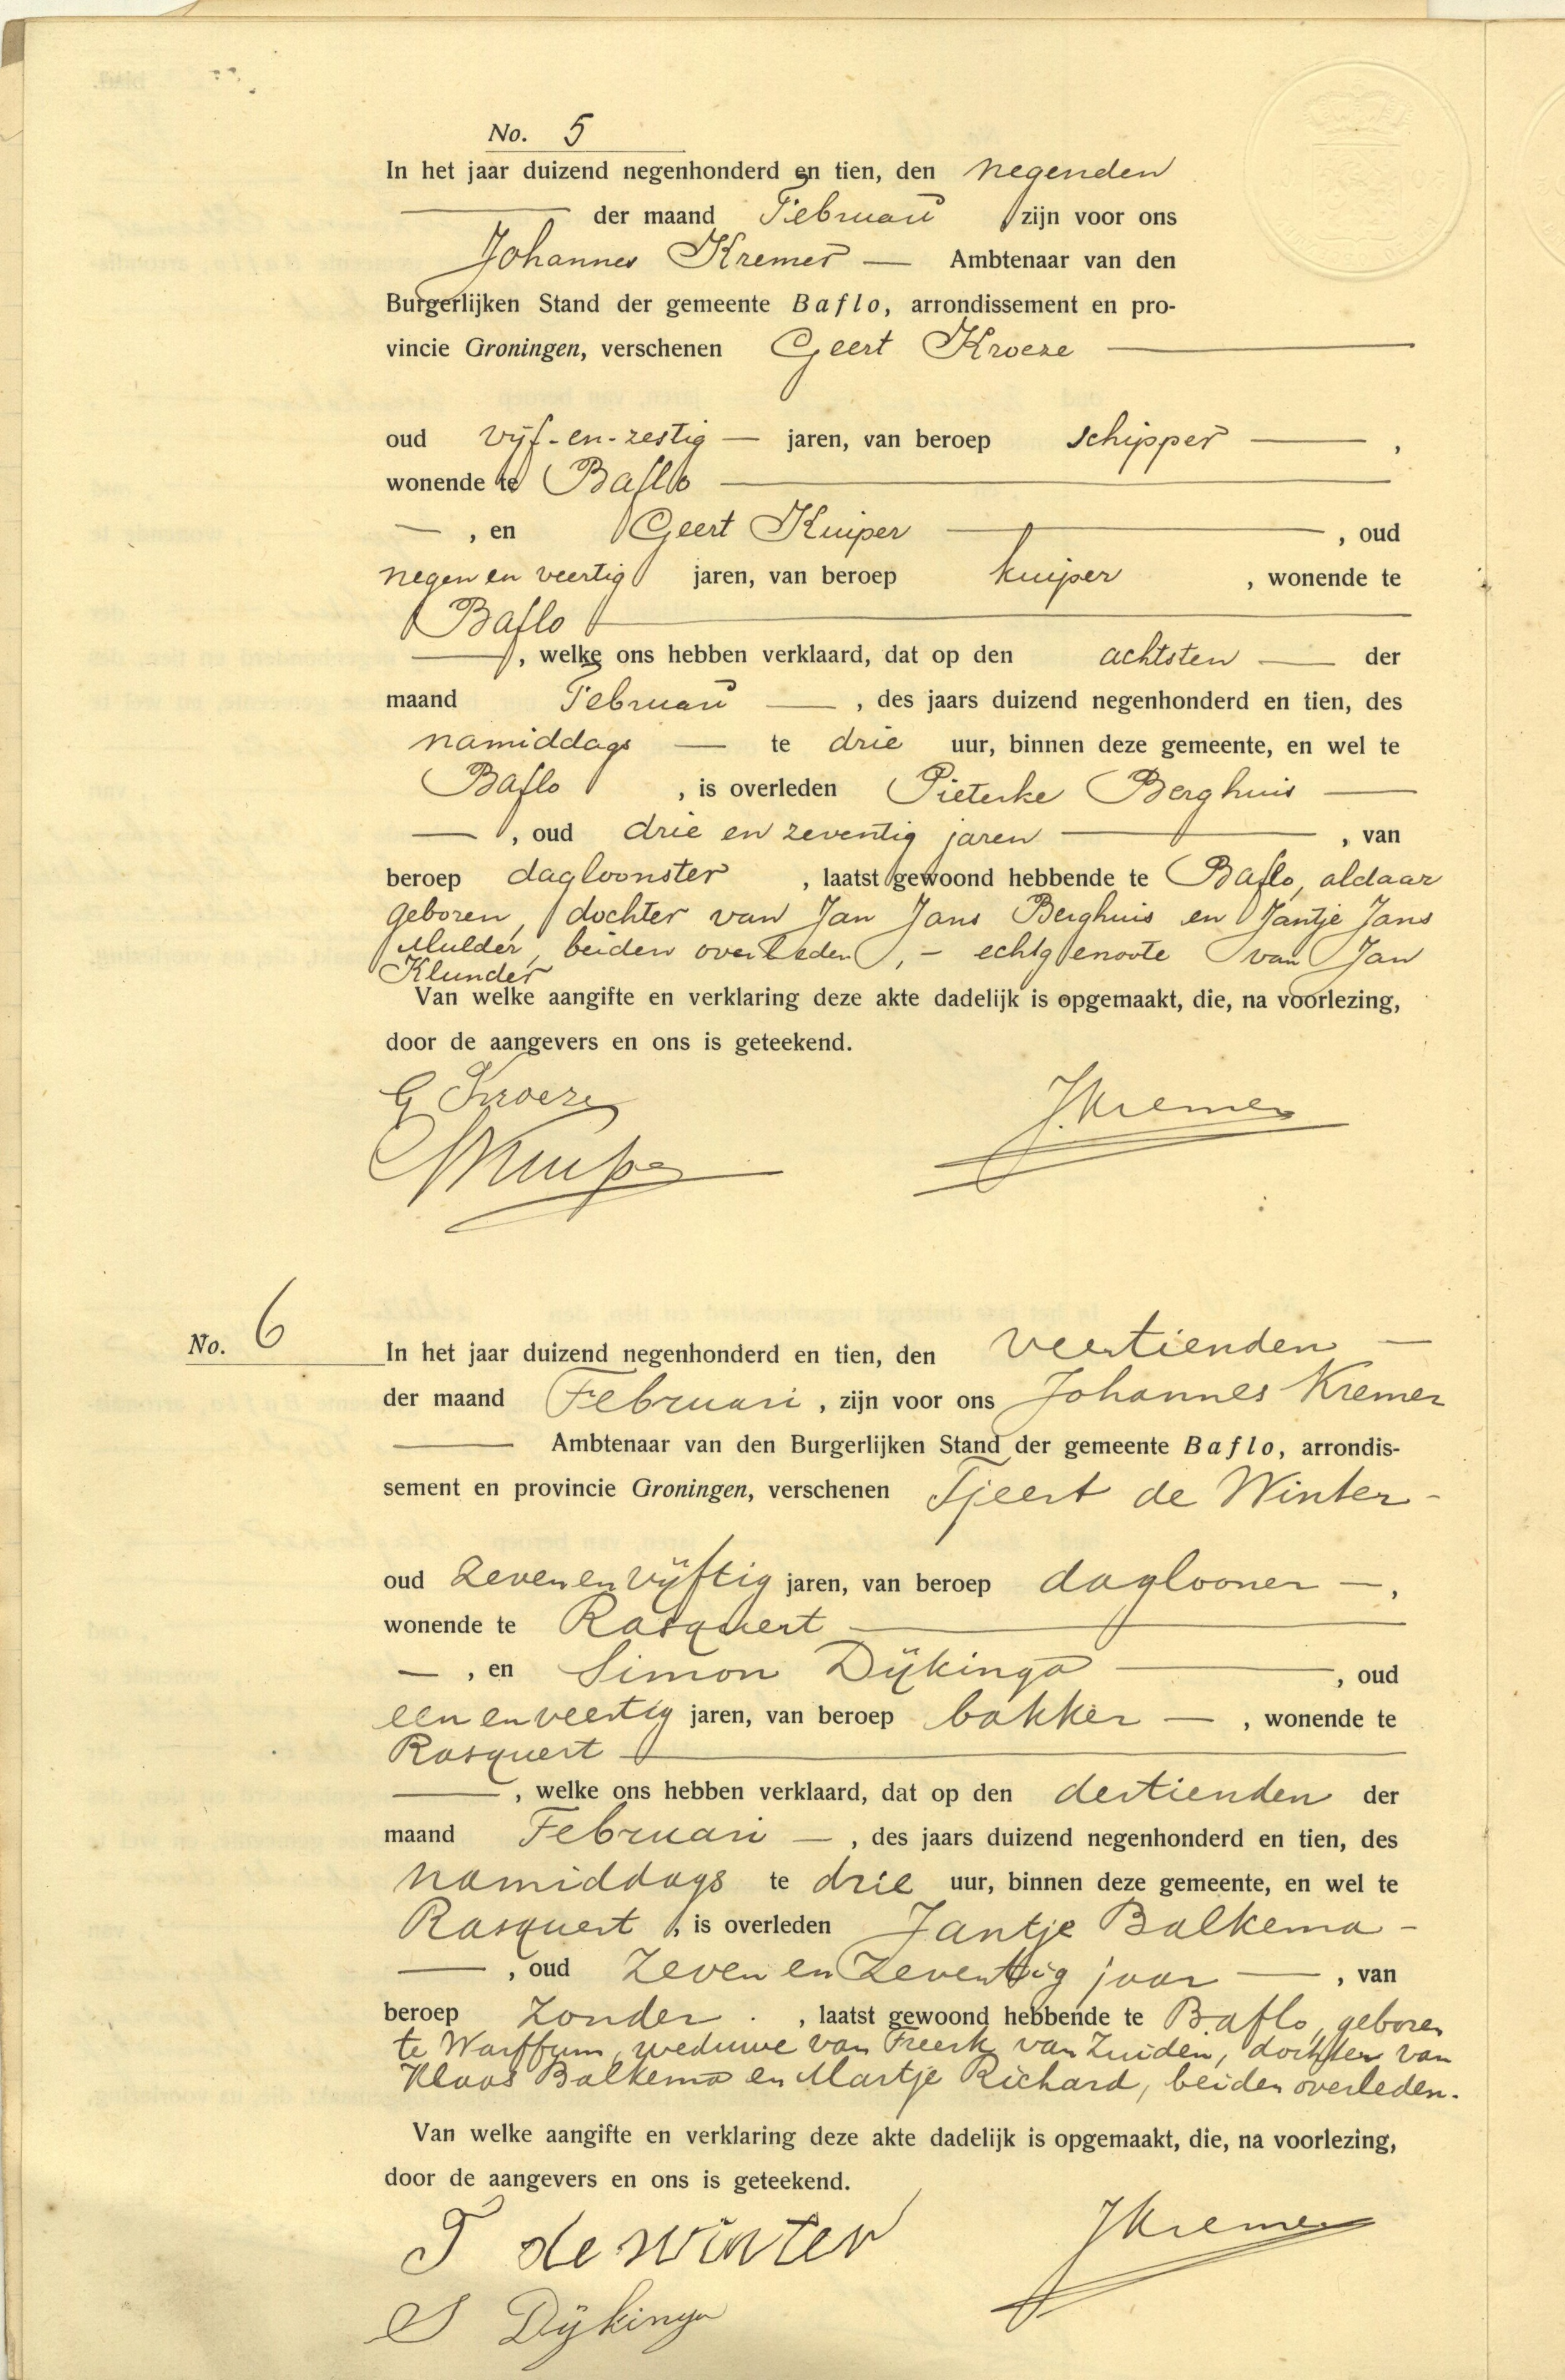 No. 5
In het jaar duizend negenhonderd en tien, den negenden
der maand Februari zijn voor ons
Johannes Kremer — Ambtenaar van den
Burgerlijken Stand der gemeente Baflo, arrondissement en pro-
vincie Groningen, verschenen Geert Kroeze
oud vijf-en-zestig — jaren, van beroep schipper — ,
wonende te Baflo
— , en Geert Kuiper — , oud
negen en veertig jaren, van beroep kuiper , wonende te
Baflo
— , welke ons hebben verklaard, dat op den achtsten — der
maand Februari — , des jaars duizend negenhonderd en tien, des
namiddags — te drie uur, binnen deze gemeente, en wel te
Baflo , is overleden Pieterke Berghuis —
— , oud drie en zeventig jaren — , van
beroep dagloonster , laatst gewoond hebbende te Baflo, aldaar
geboren, dochter van Jan Jans Berghuis en Jantje Jans
Mulder, beiden overleden, - echtgenoote van Jan
Klunder
Van welke aangifte en verklaring deze akte dadelijk is opgemaakt, die, na voorlezing,
door de aangevers en ons is geteekend.
G Kroeze
JKremer
GKuiper
No. 6
In het jaar duizend negenhonderd en tien, den veertienden —
der maand Februari , zijn voor ons Johannes Kremer
— Ambtenaar van den Burgerlijken Stand der gemeente Baflo, arrondis-
sement en provincie Groningen, verschenen Tjeert de Winter -
oud zevenenvijftig jaren, van beroep daglooner — ,
wonende te Rasquert —
— , en Simon Dijkinga — , oud
een en veertig jaren, van beroep bakker — , wonende te
Rasquert —
— , welke ons hebben verklaard, dat op den dertienden der
maand Februari — , des jaars duizend negenhonderd en tien, des
namiddags te drie uur, binnen deze gemeente, en wel te
Rasquert , is overleden Jantje Balkema -
— , oud zeven en zeventig jaar — , van
beroep zonder . , laatst gewoond hebbende te Baflo, geboren
te Warffum, weduwe van Freerk van Zuiden, dochter van
Klaas Balkema en Martje Richard, beiden overleden.
Van welke aangifte en verklaring deze akte dadelijk is opgemaakt, die, na voorlezing,
door de aangevers en ons is geteekend.
T de Winter
JKremer
S Dijkinga